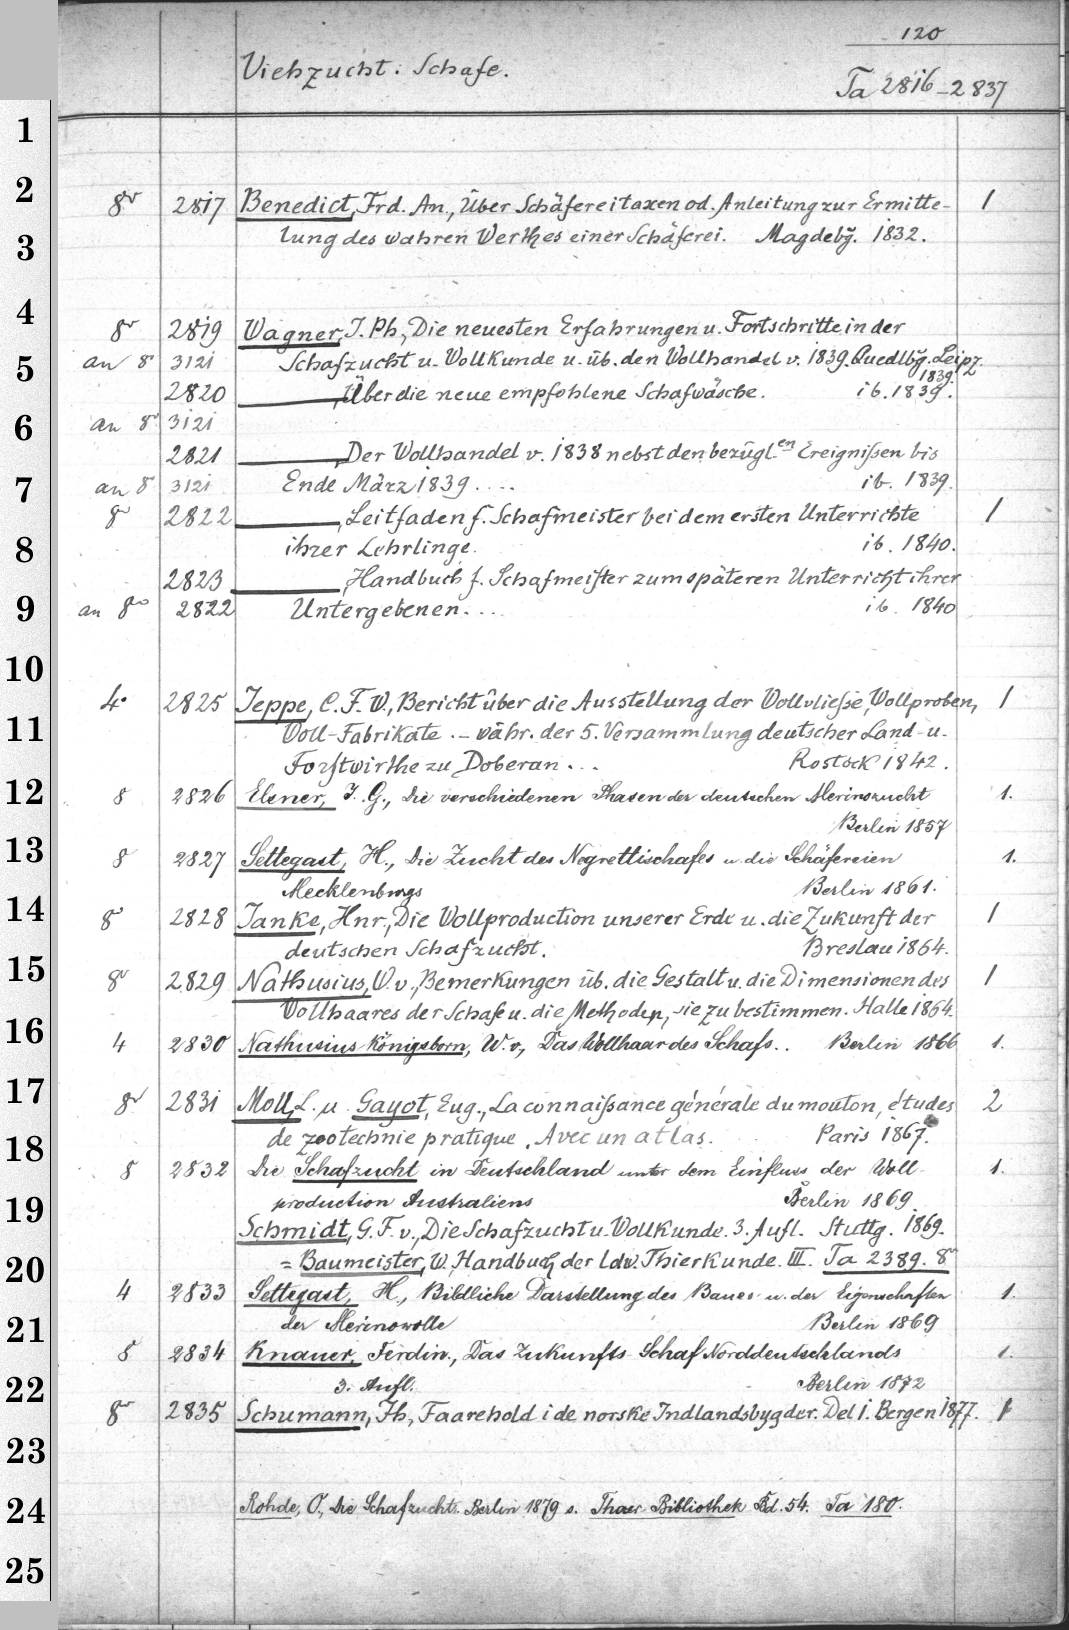 120
Viehzucht. Schafe.
Ta 2816-2837
1
2
8° 2817 Benedict, Frd. An., Über Schäfereitaxen od. Anleitung zur Ermitte- 1
3
lung des wahren Werthes einer Schäferei. Magdebg. 1832.
4
8° 2819 Wagner, J. Ph., Die neuesten Erfahrungen u. Fortschritte in der
5
an 8° 3121 Schafzucht u. Wollkunde u. üb. den Wollhandel v. 1839. Quedlbg. Leipz.
1839.
2820 ———, Über die neue empfohlene Schafwäsche. ib. 1839.
6
an 8° 3121
2821 ———, Der Wollhandel v. 1838 nebst den bezügl.en Ereignißen bis
7
an 8° 3121 Ende März 1839.... ib. 1839.
8° 2822 ———, Leitfaden f. Schafmeister bei dem ersten Unterrichte 1
8
ihrer Lehrlinge. ib. 1840.
2823 ———, Handbuch f. Schafmeister zum späteren Unterricht ihrer
9
an 8° 2822 Untergebenen.... ib. 1840
10
4° 2825 Jeppe, C. F. W., Bericht über die Ausstellung der Wollvließe, Wollproben, 1
11
Woll-Fabrikate.- währ. der 5. Versammlung deutscher Land- u.
Forstwirthe zu Doberan... Rostock 1842.
12
8 2826 Elsner, J. G., Die verschiedenen Phasen der deutschen Merinozucht 1.
Berlin 1857
13
8 2827 Settegast, H., Die Zucht des Negrettischafes u. die Schäfereien 1.
Mecklenburgs Berlin 1861.
14
8° 2828 Janke, Hnr., Die Wollproduction unserer Erde u. die Zukunft der 1
deutschen Schafzucht. Breslau 1864.
15
8° 2829 Nathusius, W. v., Bemerkungen üb. die Gestalt u. die Dimensionen des 1
Wollhaares der Schafe u. die Methoden, sie zu bestimmen. Halle 1864.
16
4 2830 Nathusius Königsborn, W. v., Das Wollhaar des Schafs.. Berlin 1866 1.
17
8° 2831 Moll, L. u. Gayot, Eug., La connaißance générale du mouton, études 2
de zootechnie pratique. Avec un atlas. Paris 1867.
18
8 2832 Die Schafzucht in Deutschland unter dem Einfluss der Woll- 1.
production Australiens Berlin 1869.
19
Schmidt, G. F. v., Die Schafzucht u. Wollkunde. 3. Aufl. Stuttg. 1869.
20
= Baumeister, W., Handbuch der ldw. Thierkunde. III. Ta 2389. 8°
4 2833 Settegast, H., Bildliche Darstellung des Baues u. der Eigenschaften 1.
21
der Merinowolle Berlin 1869
8 2834 Knauer, Ferdin., Das Zukunfts-Schaf Norddeutschlands 1.
22
3. Aufl. Berlin 1872
8° 2835 Schumann, Th., Faarehold i de norske Indlandsbygder. Del 1. Bergen 1877. 1
23
24
Rohde, O., Die Schafzucht. Berlin 1879 s. Thaer-Bibliothek Bd. 54. Ta 180.
25